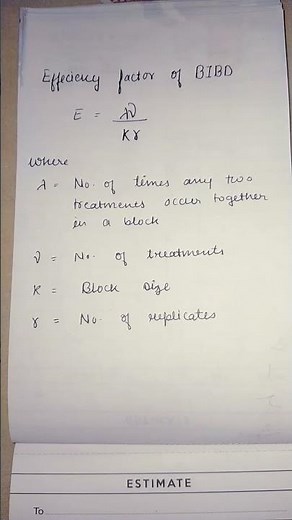 Effeciency factor of BIBD
E = λν
Kr
where
λ = No. of times any two
treatments occur together
in a block
ν = No. of treatments
K = Block Size
r = No. of replicates
ESTIMATE
To